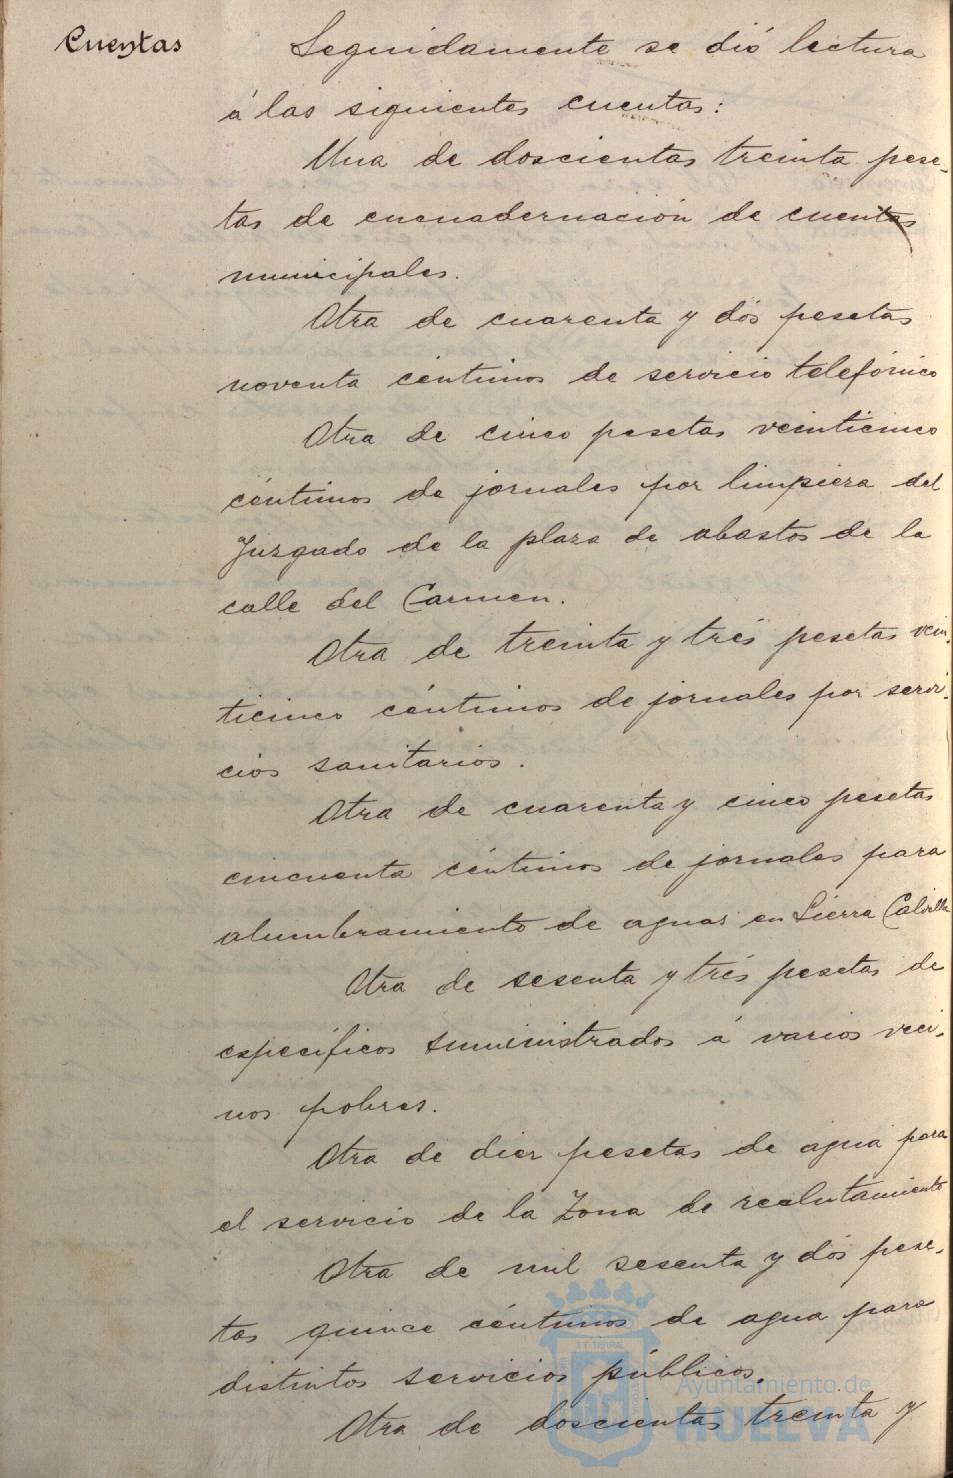 Cuentas
Seguidamente se dió lectura
á las siguientes cuentas:
Una de doscientas treinta pese-
tas de encuadernación de cuentas
municipales.
Otra de cuarenta y dós pesetas
noventa céntimos de servicio telefónico
Otra de cinco pesetas veinticinco
céntimos de jornales por limpiera del
Juzgado de la plaza de abastos de la
calle del Carmen.
Otra de treinta y trés pesetas vein-
ticinco céntimos de jornales por servi-
cios sanitarios.
Otra de cuarenta y cinco pesetas
cincuenta céntimos de jornales para
alumbramiento de aguas en Sierra Calvilla
Otra de sesenta y trés pesetas de
específicos suministrados á varios veci-
nos pobres.
Otra de diez pesetas de agua para
el servicio de la Zona de reclutamiento
Otra de mil sesenta y dós pese-
tas quince céntimos de agua para
distintos servicios públicos.
Otra de doscientas treinta y
Ayuntamiento de
HUELVA